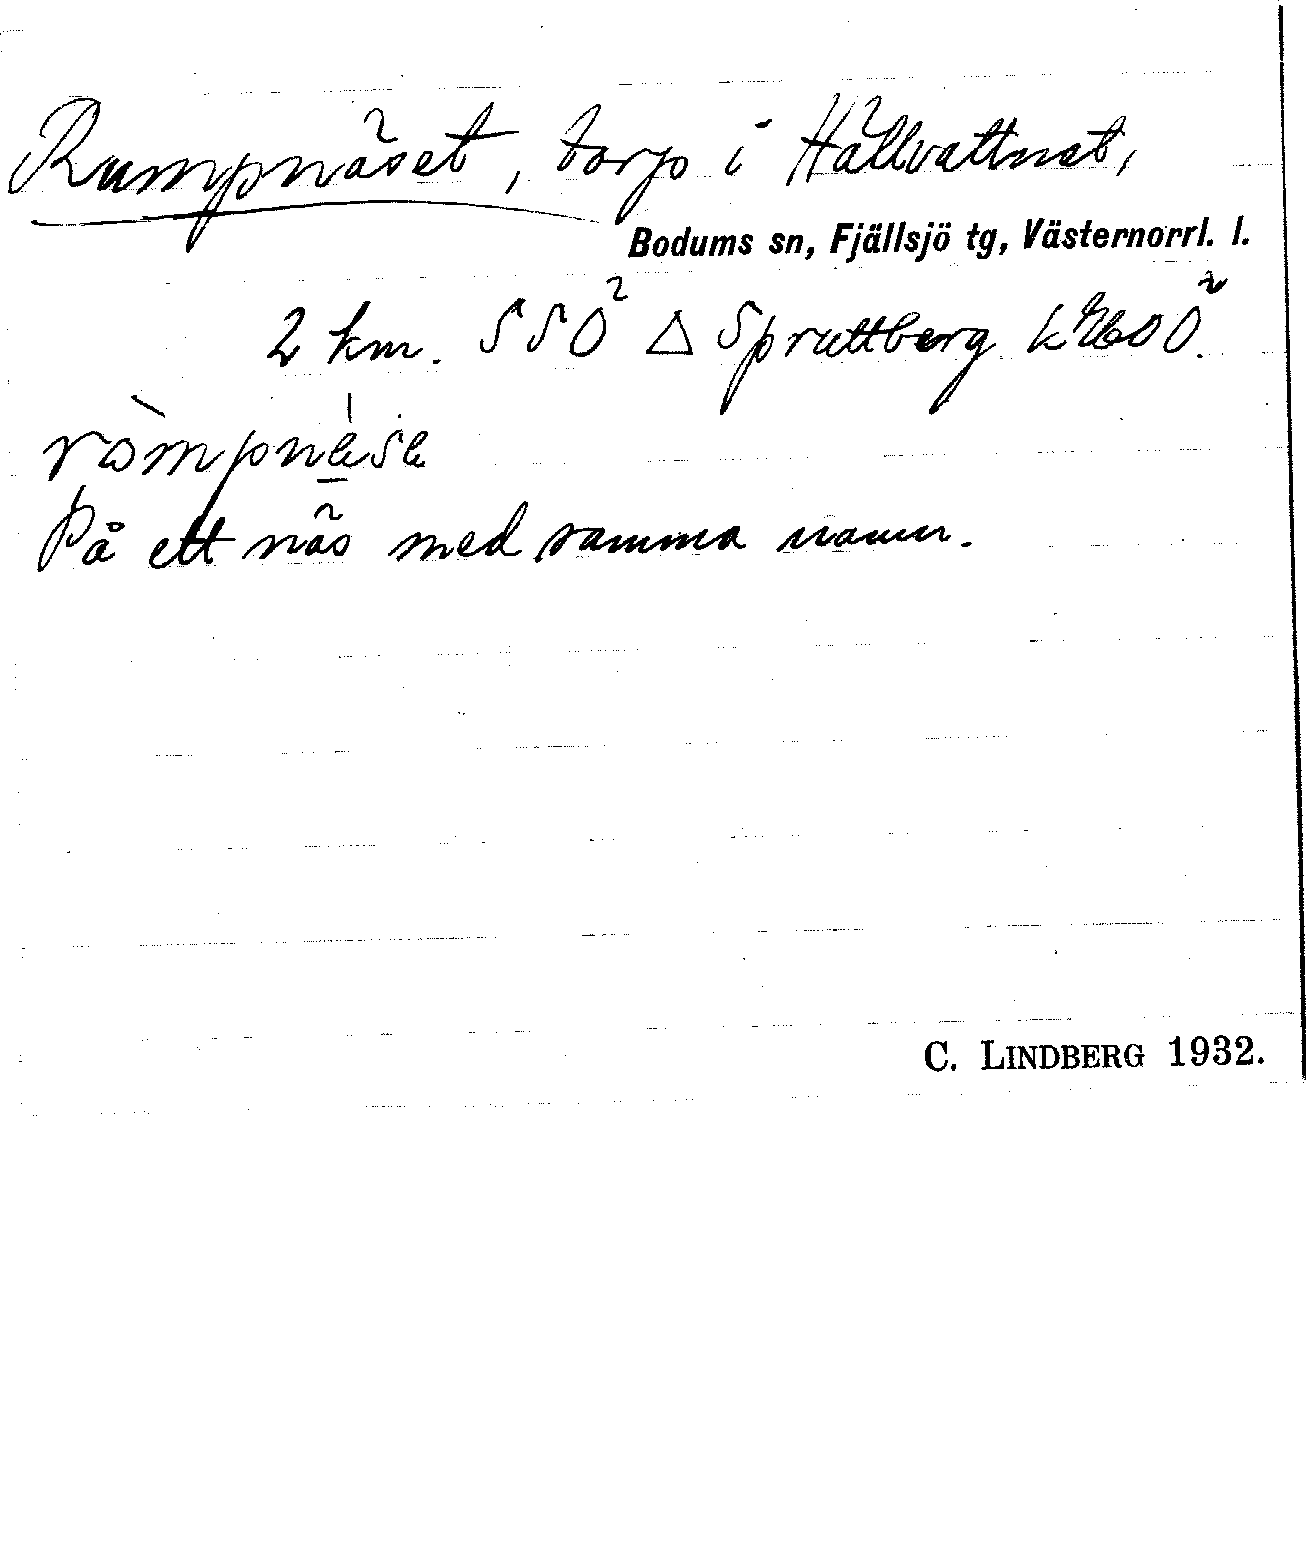 Rumpnäset, torp i Hällvattnet,
Bodums sn, Fjällsjö tg, Västernorrl. l.
2 km. SSÖ Δ Spruttberg
ròmpnǽsɐ
På ett näs med samma namn.
C. LINDBERG 1932.